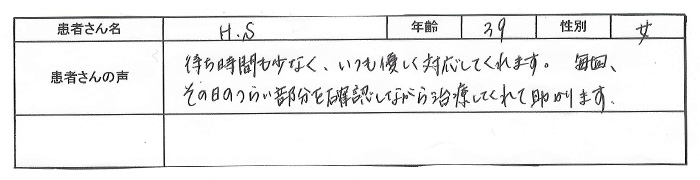 患者さん名 H.S 年齢 39 性別 女
患者さんの声 待ち時間も少なく、いつも優しく対応してくれます。 毎回、
その日のつらい部分を確認しながら治療してくれて助かります.